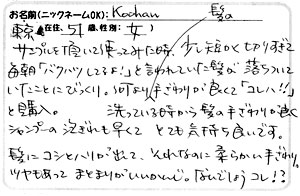 お名前(ニックネームOK): Kochan
東京在住、51歳、性別:女)
サンプルを頂いて使ってみた時、少し短めに切りすぎて
毎朝「バクハツしてるよ!」と言われていた髪が落ちついて
いたことにびっくり。何より手ざわりが良くて「コレハ!!」
と購入。洗っている時から髪の手ざわりが良く
シャンプーの泡ぎれも早くてとても気持ち良いです。
髪にコシとハリが出て、それなのに柔らかい手ざわり。
ツヤもあってまとまりがいいかんじ。なんでしょうコレ!?
髪の